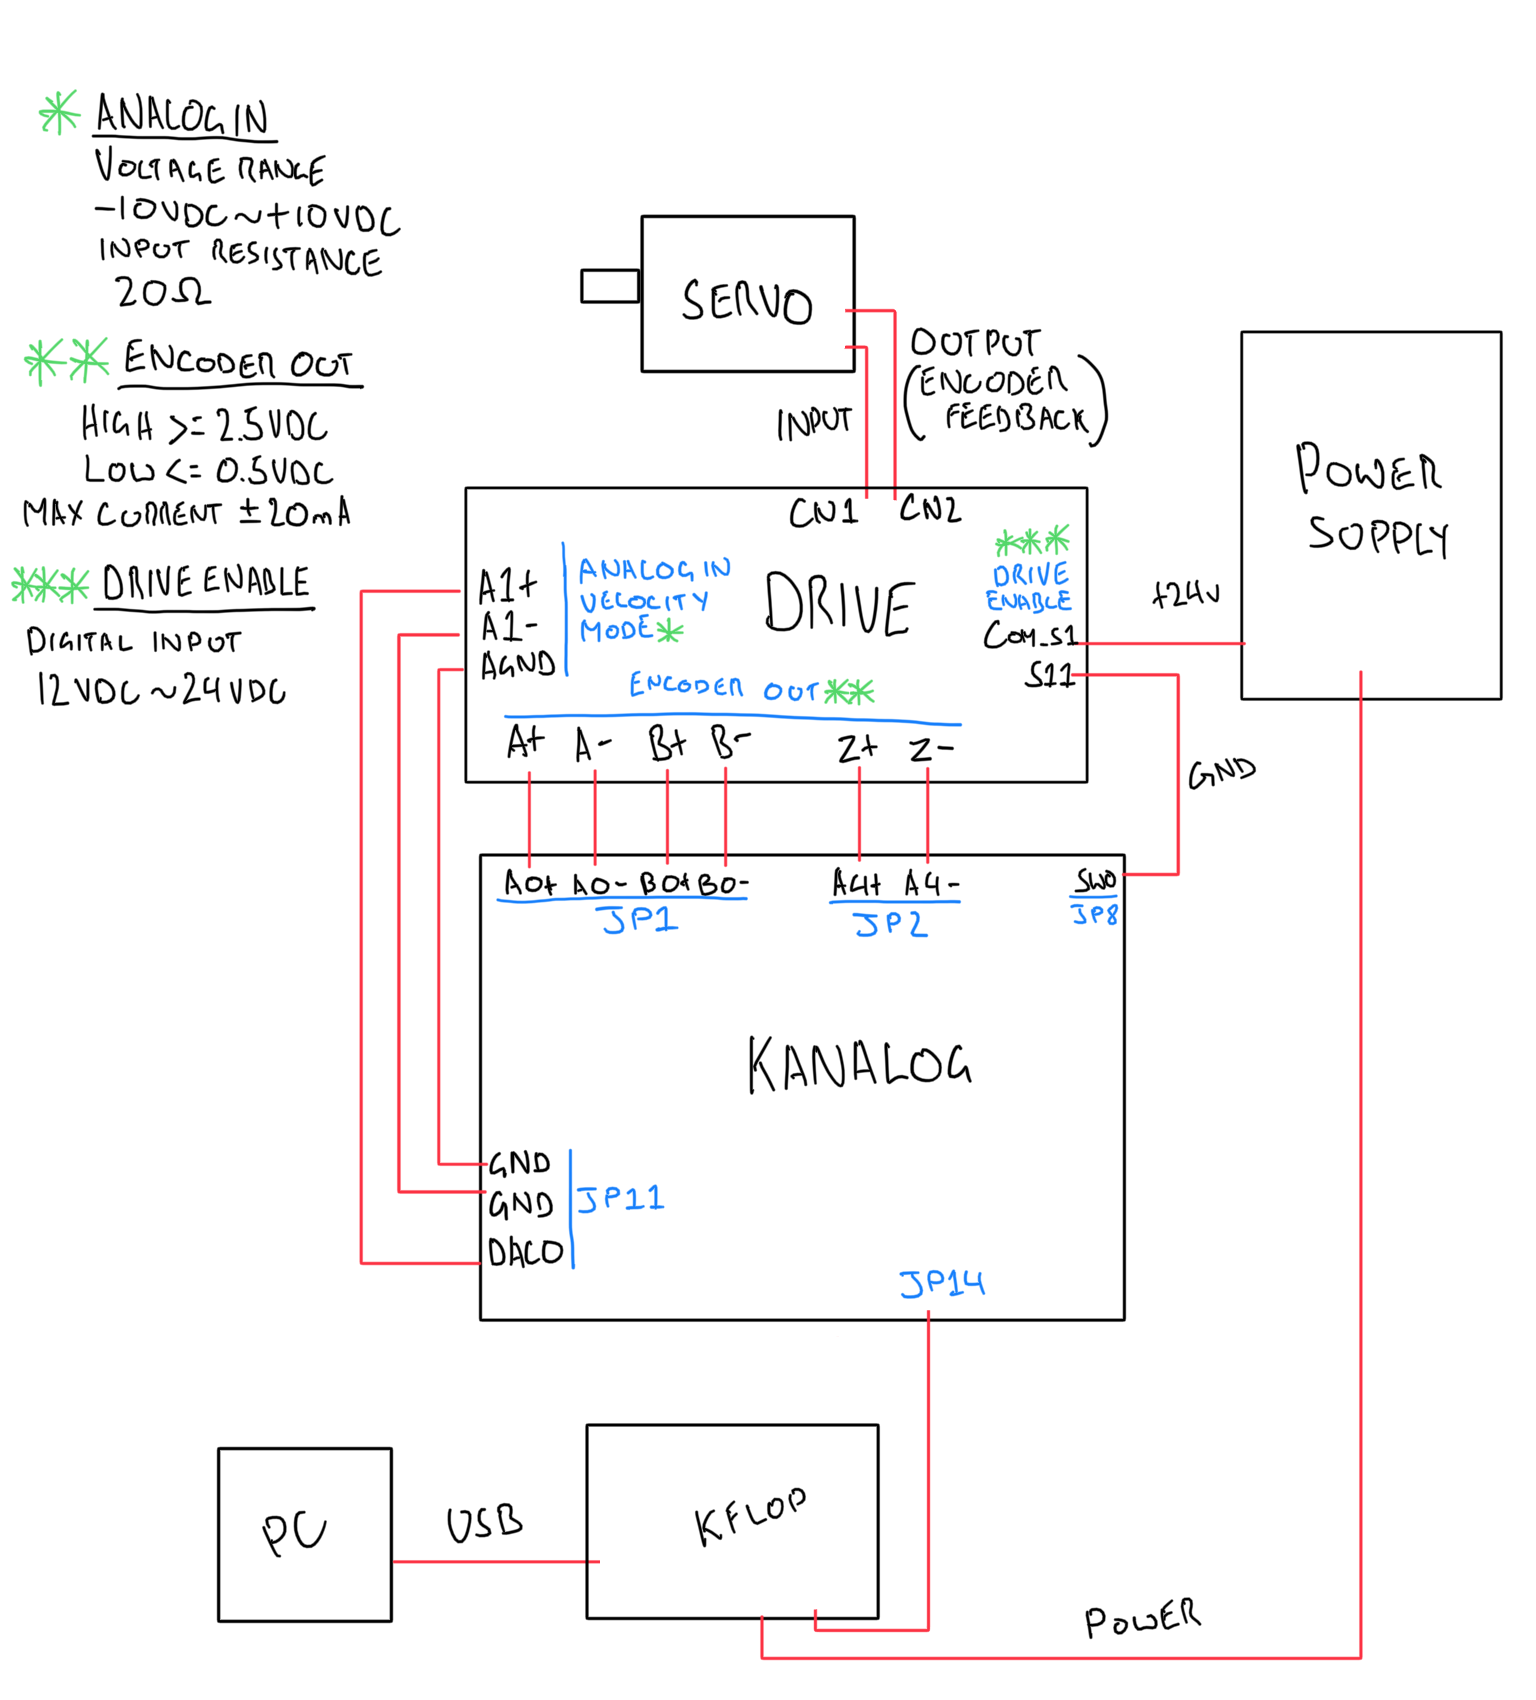 * ANALOG IN
VOLTAGE RANGE
-10VDC ~ +10VDC
INPUT RESISTANCE
20Ω
** ENCODER OUT
HIGH >= 2.5VDC
LOW <= 0.5VDC
MAX CURRENT ± 20mA
*** DRIVE ENABLE
DIGITAL INPUT
12VDC ~ 24VDC
SERVO
INPUT
OUTPUT
(ENCODER
FEEDBACK)
CN1 CN2
DRIVE
A1+
A1-
AGND
ANALOG IN
VELOCITY
MODE *
ENCODER OUT **
A+ A- B+ B- Z+ Z-
***
DRIVE
ENABLE
COM_S1
S11
+24V
GND
POWER
SUPPLY
A0+ A0- B0+ B0-
JP1
A4+ A4-
JP2
SW0
JP8
KANALOG
GND
GND
DAC0
JP11
JP14
PC
USB
KFLOP
POWER